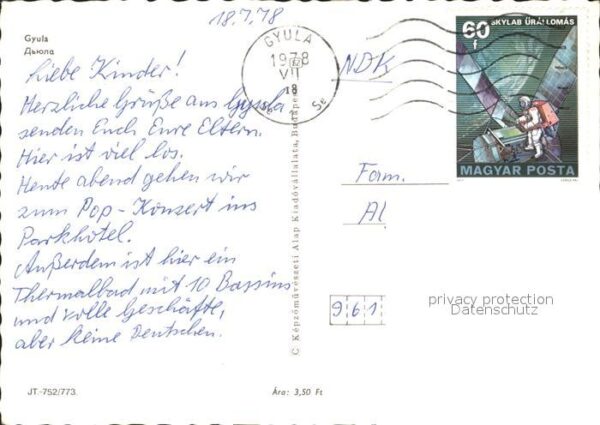 18.7.78
Gyula
Дьюла
Liebe Kinder!
Herzliche Grüße aus Gyula
senden Euch Eure Eltern.
Hier ist viel los.
Heute abend gehen wir
zum Pop-Konzert ins
Parkhotel.
Außerdem ist hier ein
Thermalbad mit 10 Bassins
und volle Geschäfte,
aber keine Deutschen.
JT.-752/773.
Ára: 3,50 Ft
C Képzőművészeti Alap Kiadóvállalata, Budapest
GYULA
1978
VII
18
NDK
Fam.
Al
961
60 f
SKYLAB ŰRÁLLOMÁS
MAGYAR POSTA
privacy protection
Datenschutz